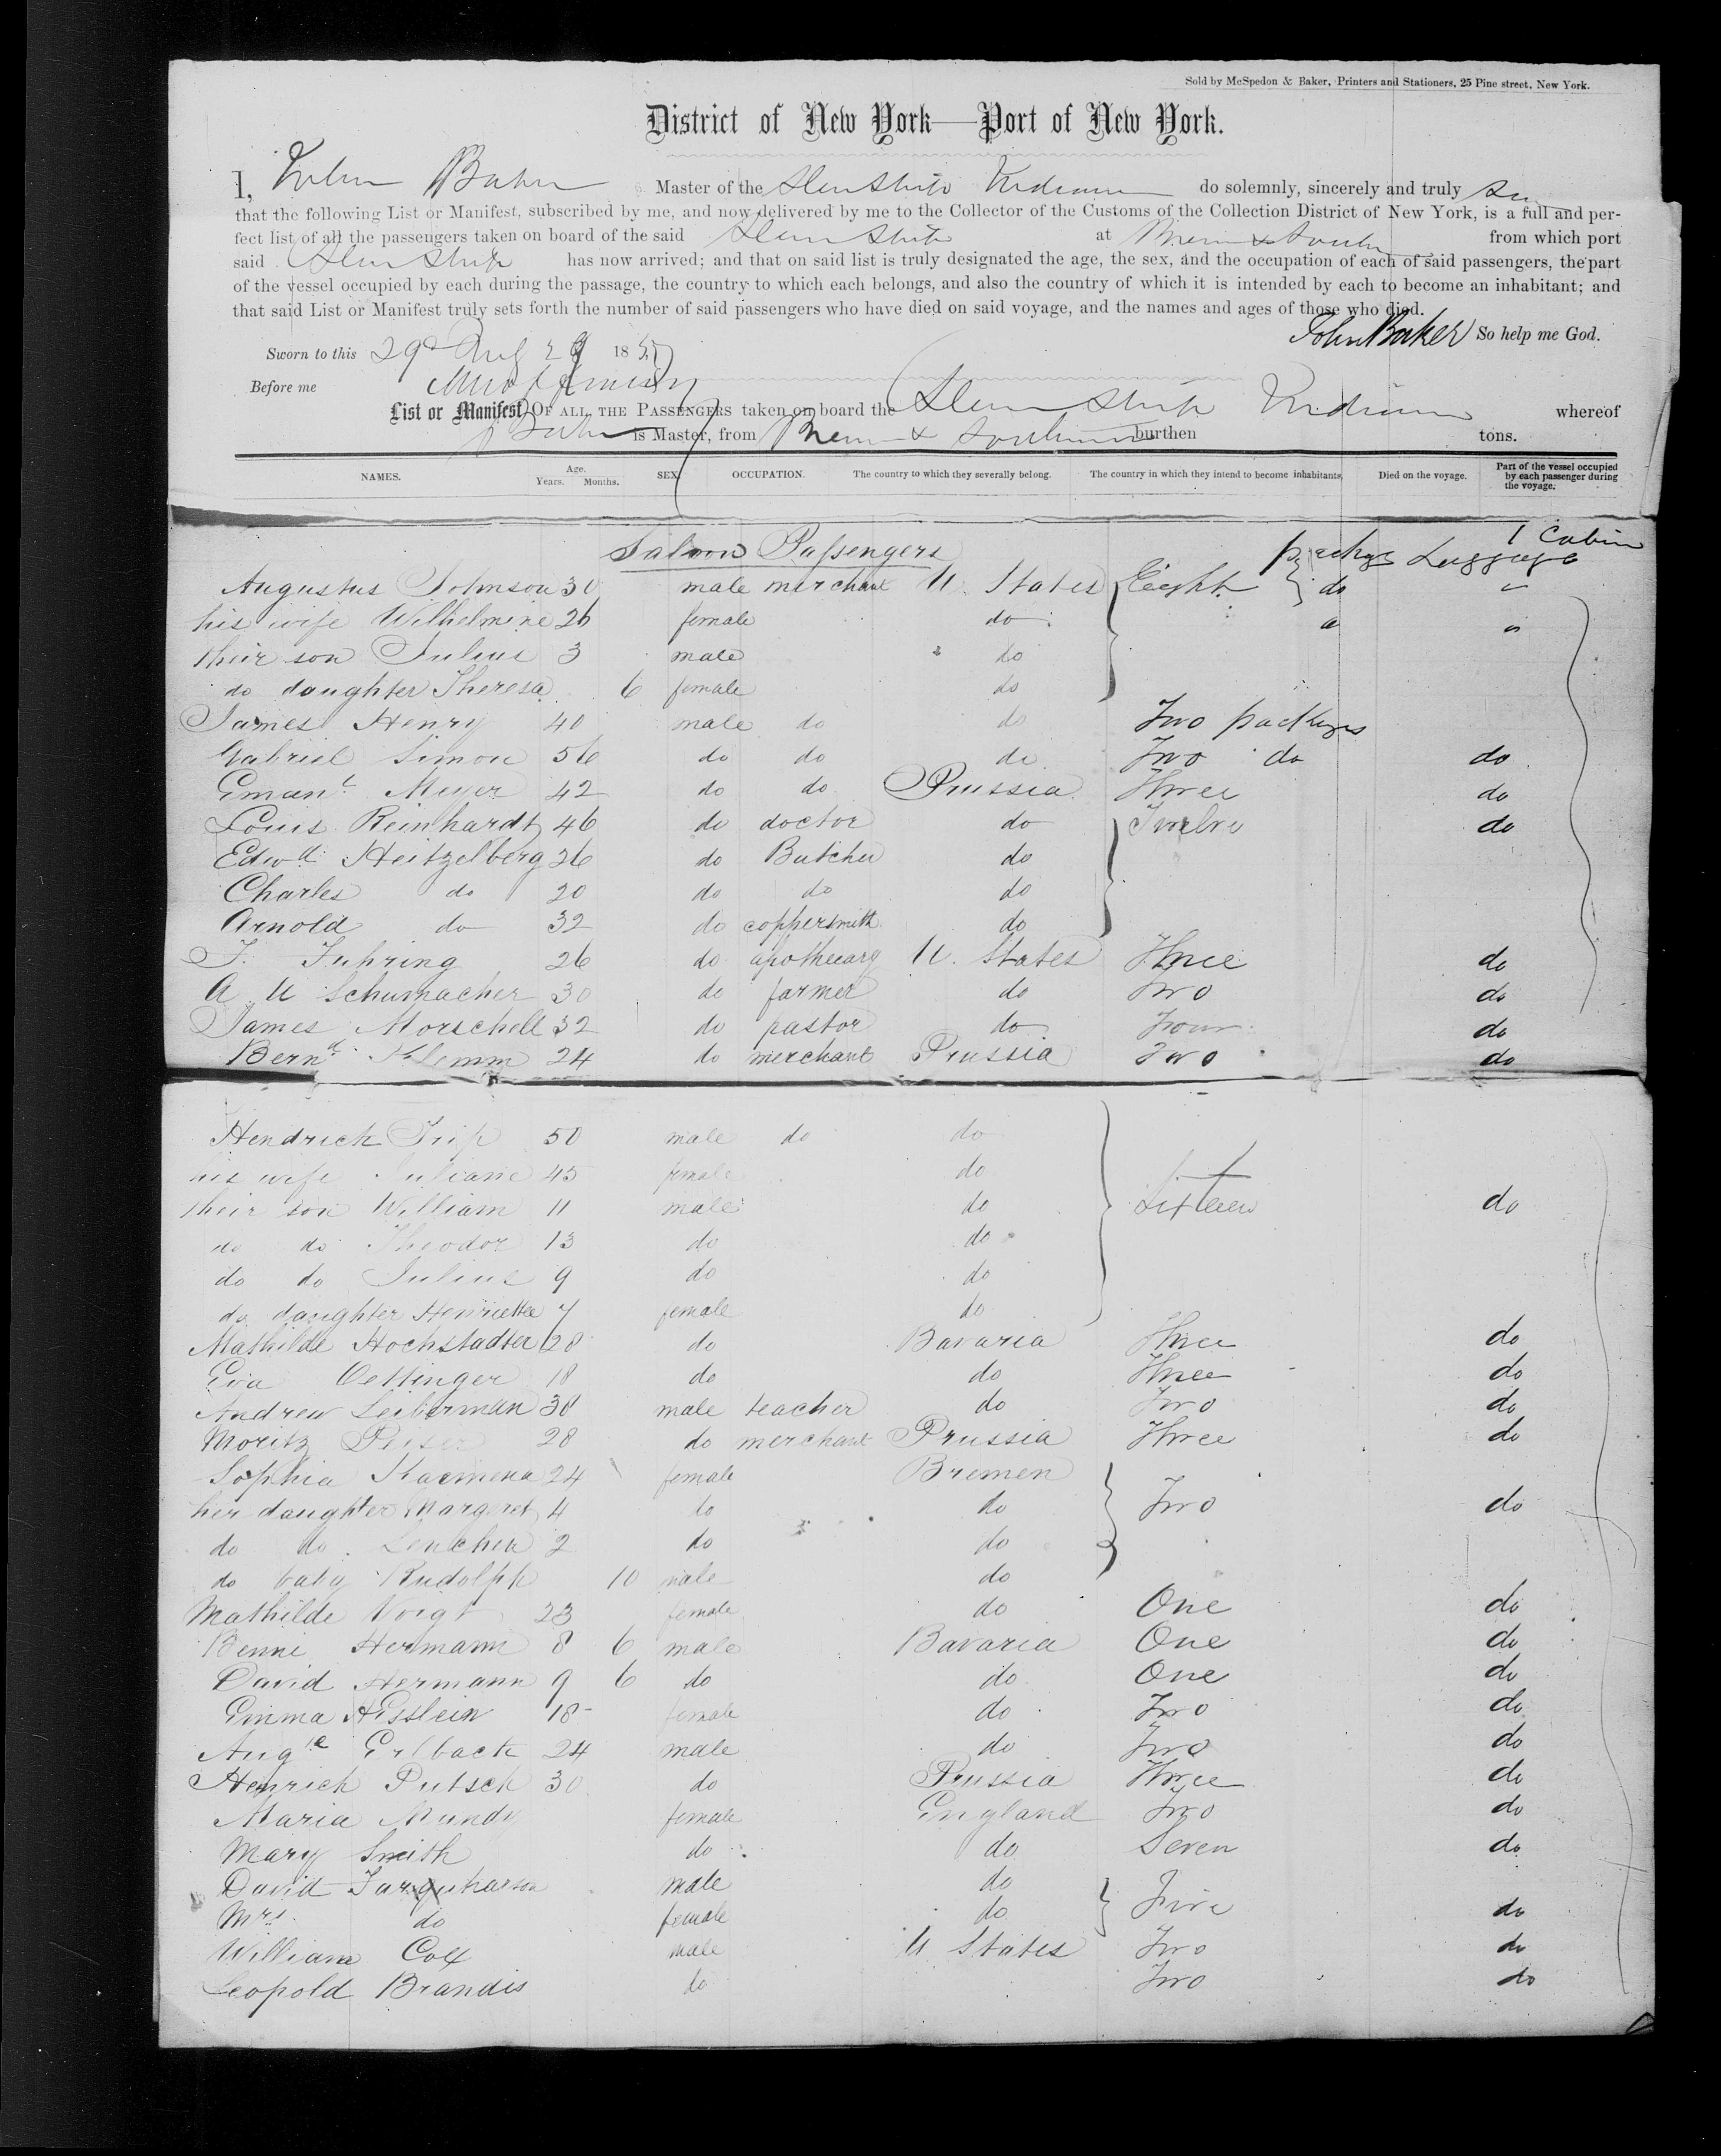 Sold by McSpedon & Baker, Printers and Stationers, 25 Pine street, New York.
District of New York—Port of New York.
I, John Baker Master of the Steam Ship do solemnly, sincerely and truly
that the following List or Manifest, subscribed by me, and now delivered by me to the Collector of the Customs of the Collection District of New York, is a full and per-
fect list of all the passengers taken on board of the said Steam Ship at from which port
said Steam Ship has now arrived; and that on said list is truly designated the age, the sex, and the occupation of each of said passengers, the part
of the vessel occupied by each during the passage, the country to which each belongs, and also the country of which it is intended by each to become an inhabitant; and
that said List or Manifest truly sets forth the number of said passengers who have died on said voyage, and the names and ages of those who died.
John Baker So help me God.
Sworn to this 29 Aug 18
Before me
List or Manifest OF ALL THE PASSENGERS taken on board the Steam Ship whereof
Baker is Master, from burthen tons.
NAMES. Age. Years. Months. SEX. OCCUPATION. The country to which they severally belong. The country in which they intend to become inhabitants. Died on the voyage. Part of the vessel occupied by each passenger during the voyage.
Saloon Passengers Luggage 1 Cabin
Augustus Johnson 30 male merchant U. States Eight do
his wife Wilhelmine 26 female do
their son Julius 3 male do
do daughter Theresa 6 female do
James Henry 40 male do do Two packages
Gabriel Simon 56 do do do Two do do
Emanl Meyer 42 do do Prussia Three do
Louis Reinhardt 46 do doctor do Twelve do
Edwd Heitzelberg 26 do Butcher do
Charles do 20 do do do
Arnold do 32 do coppersmith do
F. Fuhring 26 do apothecary U. States Three do
A U Schumacher 30 do farmer do Two do
James Morschell 32 do pastor do Four do
Bernd Klemm 24 do merchant Prussia Two do
Hendrich Trip 50 male do do
his wife Juliane 45 female do
their son William 11 male do Sixteen do
do do Theodor 13 do do
do do Julius 9 do do
do daughter Henriette 7 female do
Mathilde Hochstadter 28 do Bavaria Three do
Eva Oettinger 18 do do Three do
Andrew Leiberman 38 male teacher do Two do
Moritz Peiser 28 do merchant Prussia Three do
Sophia Kaemena 24 female Bremen
her daughter Margaret 4 do do Two do
do do Lenchen 2 do do
do baby Rudolph 10 male do
Mathilde Voigt 23 female do One do
Benni Hermann 8 6 male Bavaria One do
David Hermann 9 6 do do One do
Emma Hesslein 18 female do Two do
Augte Erlbach 24 male do Two do
Henrich Putsch 30 do Prussia Three do
Maria Mundy female England Two do
Mary Smith do do Seven do
David Farquharson male do Five
Mrs do female do do
William Cox male U States Two do
Leopold Brandis do Two do